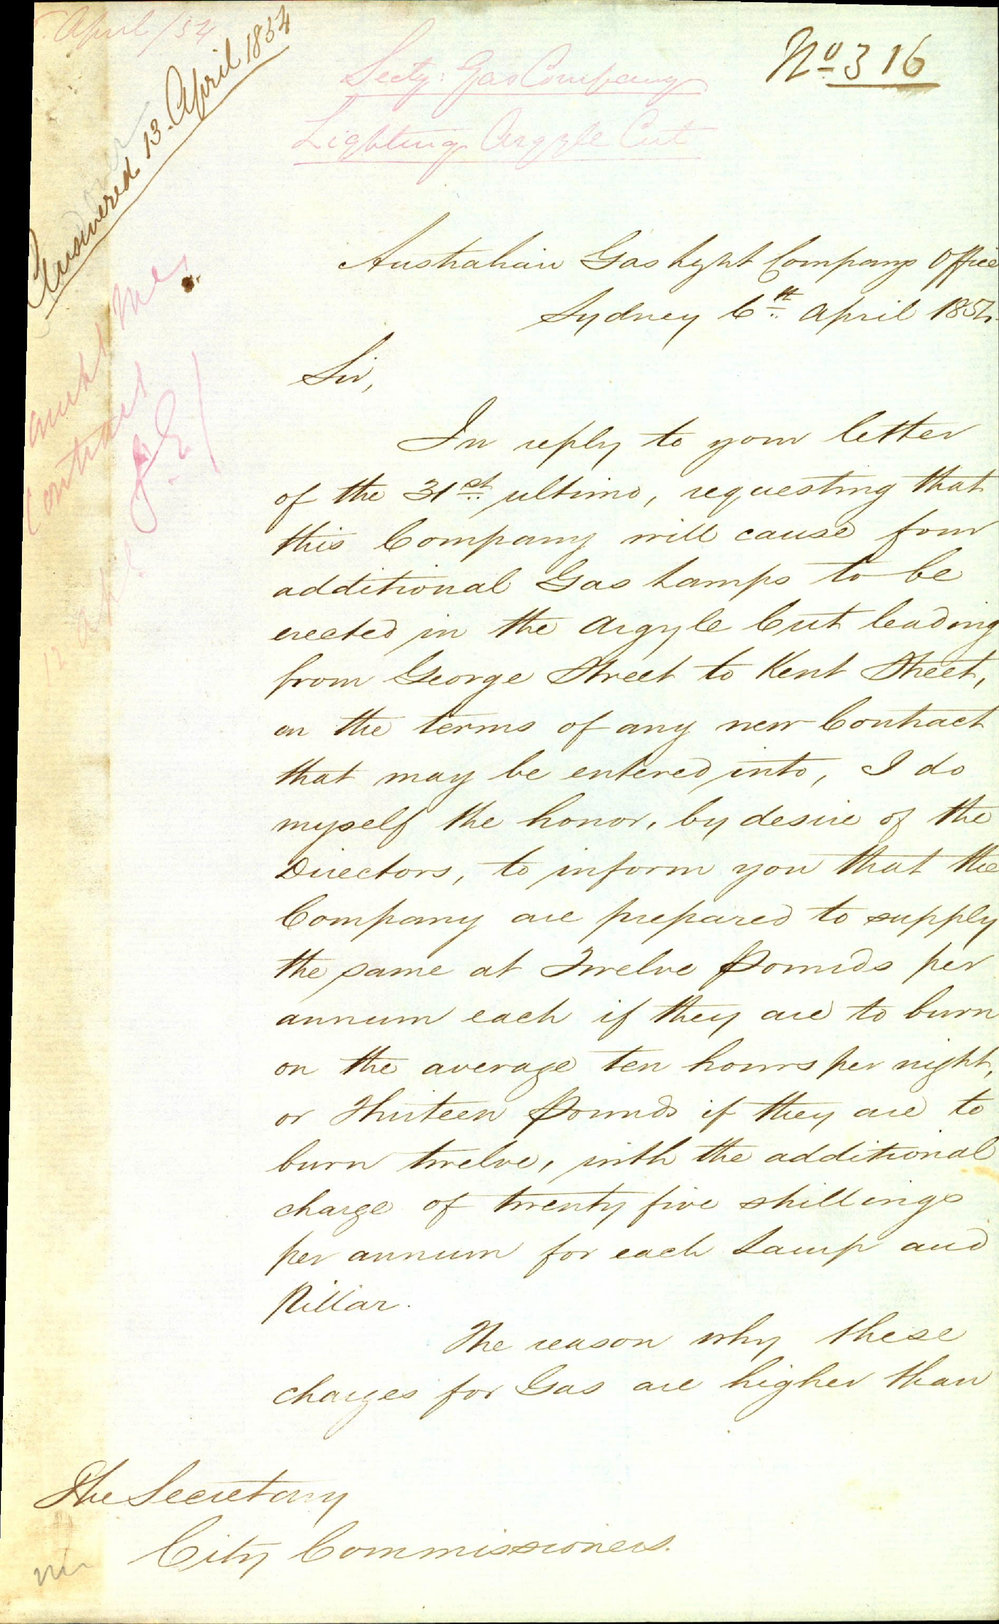 April/54
Answered 13. April 1854
No 316
Secty: Gas Company
Lighting Argyle Cut
Australian Gas Light Company Office
Sydney 6th. April 1854.
Sir,
In reply to your letter
of the 31st. ultimo, requesting that
this Company will cause four
additional Gas Lamps to be
erected in the Argyle Cut leading
from George Street to Kent Street,
on the terms of any new Contract
that may be entered into, I do
myself the honor, by desire of the
Directors, to inform you that the
Company are prepared to supply
the same at Twelve Pounds per
annum each if they are to burn
on the average ten hours per night,
or Thirteen Pounds if they are to
burn twelve, with the additional
charge of twenty five shillings
per annum for each Lamp and
Pillar.
The reason why these
charges for Gas are higher than
The Secretary
City Commissioners.